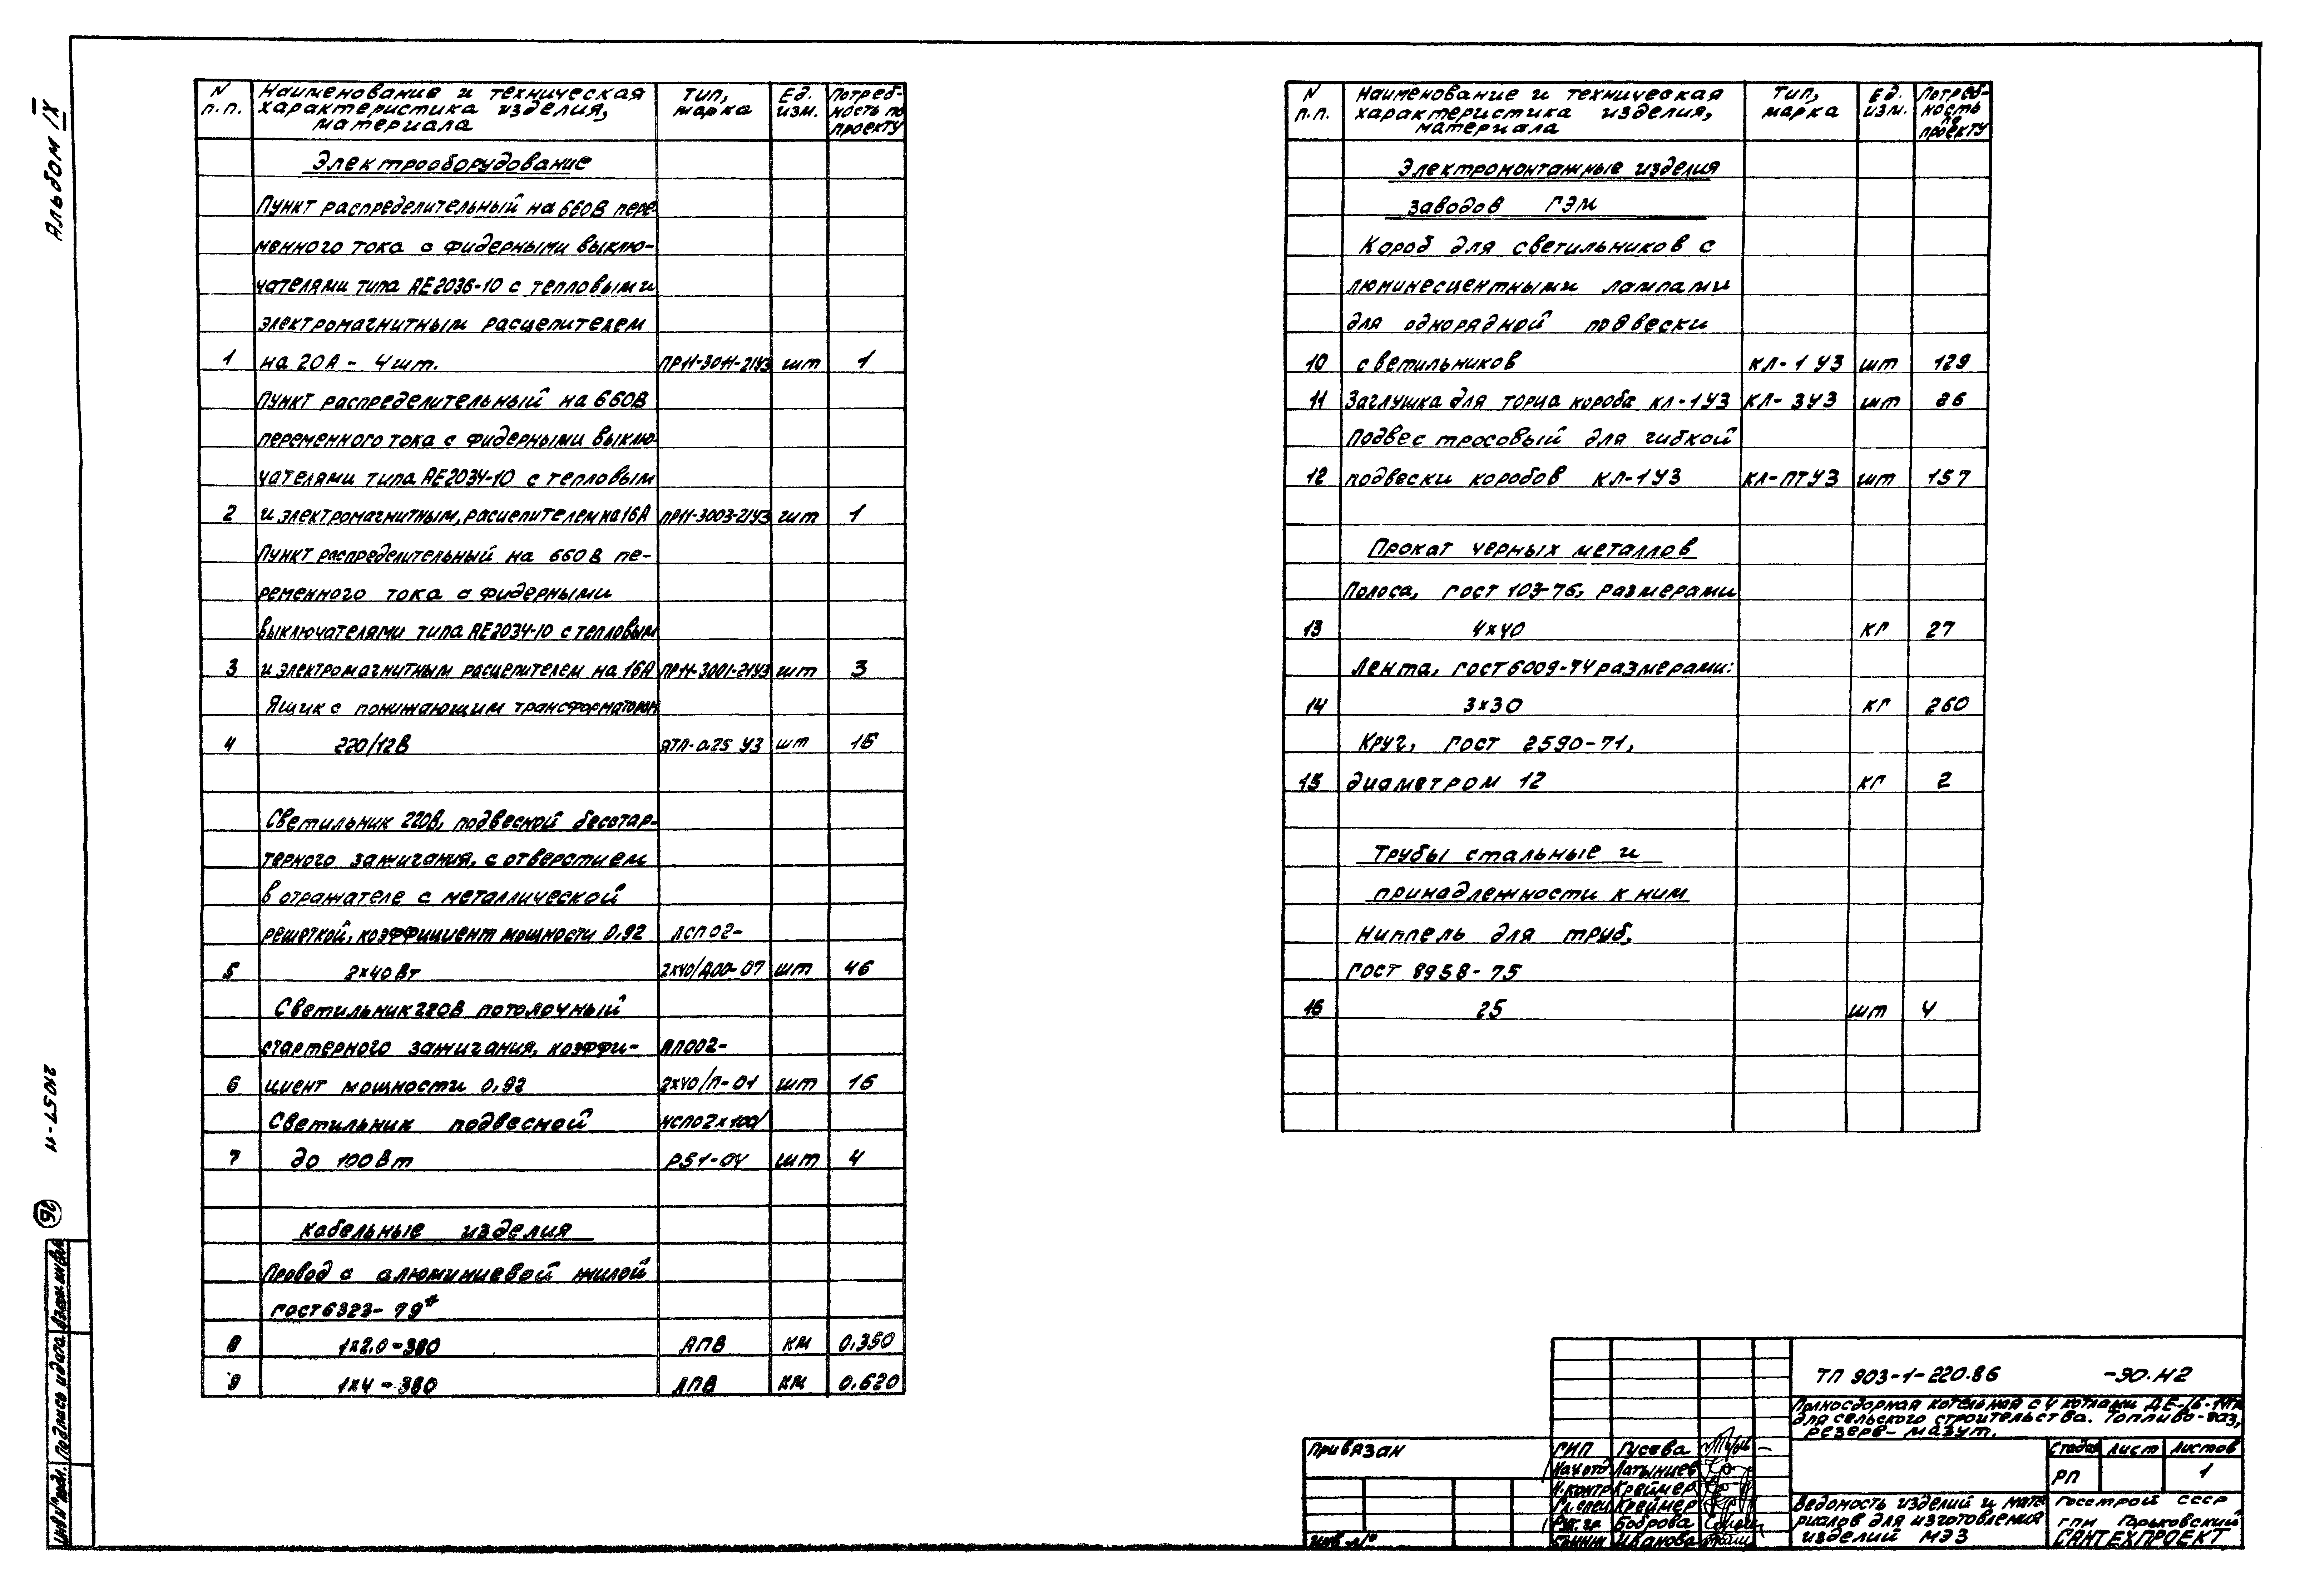 Альбом IX
N п.п. Наименование и техническая характеристика изделия, материала Тип, марка Ед. изм. Потребность по проекту
Электрооборудование
Пункт распределительный на 660В пере-
менного тока с фидерными выклю-
чателями типа АЕ2036-10 с тепловым и
электромагнитным расцепителем
1 на 20А - 4шт. ПР11-3011-21У3 шт 1
Пункт распределительный на 660В
переменного тока с фидерными выклю-
чателями типа АЕ2034-10 с тепловым
2 и электромагнитным, расцепителем на 16А ПР11-3003-21У3 шт 1
Пункт распределительный на 660В пе-
ременного тока с фидерными
выключателями типа АЕ2034-10 с тепловым
3 и электромагнитным расцепителем на 16А ПР11-3001-21У3 шт 3
Ящик с понижающим трансформатором
4 220/12В ЯТП-0.25 У3 шт 15
Светильник 220В, подвесной бесстар-
терного зажигания, с отверстием
в отражателе с металлической
решеткой, коэффициент мощности 0,92 ЛСП02-
5 2х40Вт 2х40/Д00-07 шт 46
Светильник 220В потолочный
стартерного зажигания, коэффи- ЛПО02-
6 циент мощности 0,92 2х40/П-01 шт 16
Светильник подвесной НСП02х100/
7 до 100Вт Р51-04 шт 4
Кабельные изделия
Провод с алюминиевой жилой
ГОСТ 6323-79*
8 1х2,0-380 АПВ км 0,350
9 1х4-380 АПВ км 0,620
N п.п. Наименование и техническая характеристика изделия, материала Тип, марка Ед. изм. Потребность по проекту
Электромонтажные изделия
заводов ГЭМ
Короб для светильников с
люминесцентными лампами
для однорядной подвески
10 светильников КЛ-1 У3 шт 129
11 Заглушка для торца короба КЛ-1У3 КЛ-3У3 шт 86
Подвес тросовый для гибкой
12 подвески коробов КЛ-1У3 КЛ-ПТУ3 шт 157
Прокат черных металлов
Полоса, ГОСТ 103-76, размерами
13 4х40 кг 27
Лента, ГОСТ 6009-74 размерами:
14 3х30 кг 260
Круг, ГОСТ 2590-71,
15 диаметром 12 кг 2
Трубы стальные и
принадлежности к ним
Ниппель для труб,
ГОСТ 8958-75
16 25 шт 4
21057-11
Инв.№ подл. Подпись и дата Взам.инв.№
ТП 903-1-220.86 -ЭО.И2
Полносборная котельная с 4 котлами ДЕ-16-14ГМ
для сельского строительства. Топливо-газ,
резерв-мазут.
Привязан
Инв.№
ГИП Гусева
Нач.отд Латынцев
Н.контр Креймер
Гл.спец Креймер
Рук.гр Боброва
Иванова
Стадия Лист Листов
РП 1
Ведомость изделий и мате-
риалов для изготовления
изделий МЭЗ
Госстрой СССР
ГПИ Горьковский
САНТЕХПРОЕКТ